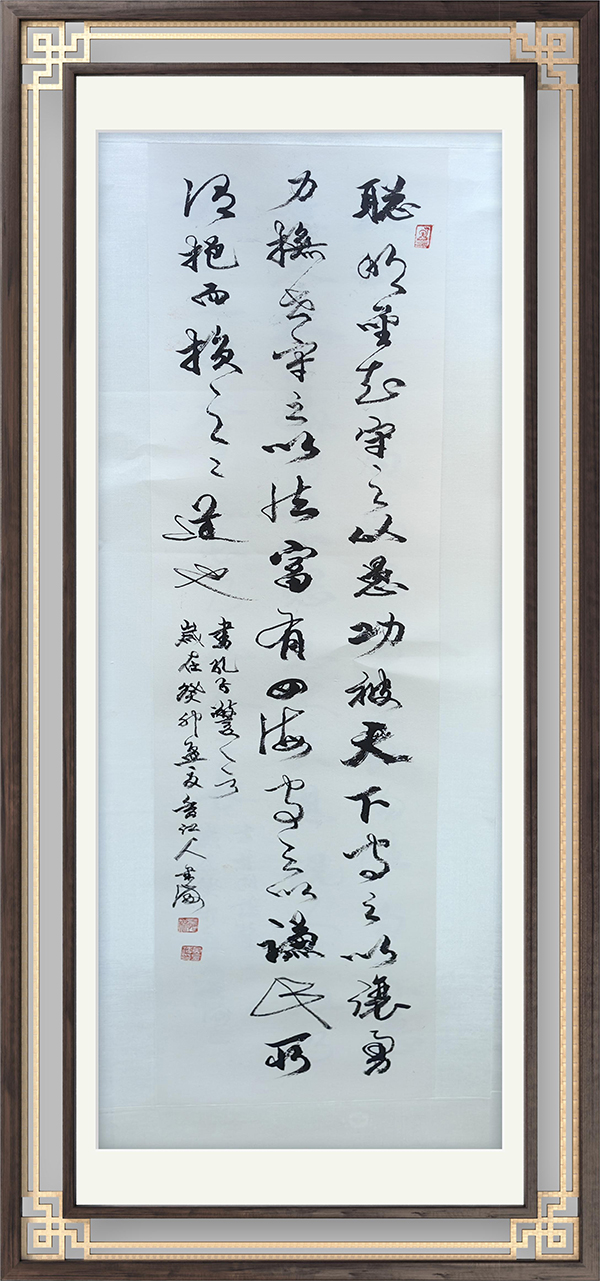 聪明聖知守之以愚功被天下守之以讓勇
力撫世守之以怯富有四海守之以謙此所
謂挹而損之之道也
書孔子警言
歲在癸卯孟夏香江人